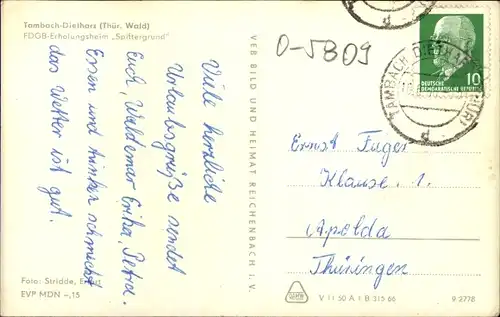 Tambach-Dietharz (Thür. Wald)
FDGB-Erholungsheim „Spittergrund"
Viele herzliche
Urlaubsgrüße sendet
Euch, Waldemar Erika, Petra.
Essen und trinken schmeckt
das Wetter ist gut.
Foto: Stridde, Erfurt
EVP MDN –,15
VEB BILD UND HEIMAT REICHENBACH I. V.
0-5809
TAMBACH-DIETHARZ
DEUTSCHE
DEMOKRATISCHE REPUBLIK
10
Ernst Fuger
Klause. 1.
Apolda
Thüringen
V 11 50 A 1 B 315 66
9 2778